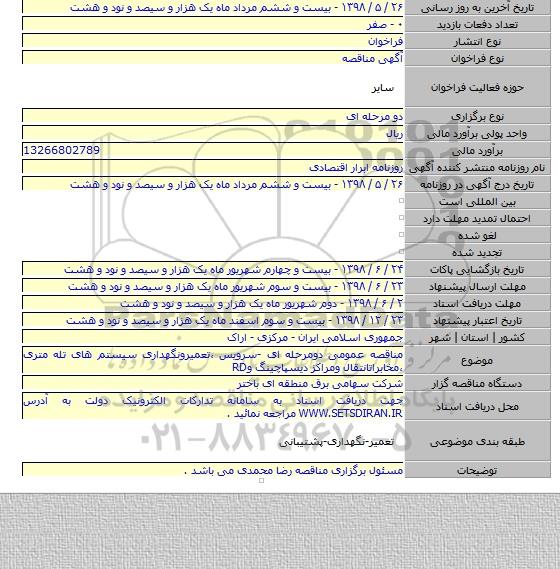 تاریخ آخرین به روز رسانی ۲۶ / ۵ / ۱۳۹۸ - بیست و ششم مرداد ماه یک هزار و سیصد و نود و هشت
تعداد دفعات بازدید ۰ - صفر
نوع انتشار فراخوان
نوع فراخوان آگهی مناقصه
حوزه فعالیت فراخوان سایر
نوع برگزاری دو مرحله ای
واحد پولی برآورد مالی ریال
برآورد مالی 13266802789
نام روزنامه منتشر کننده آگهی روزنامه ابرار اقتصادی
تاریخ درج آگهی در روزنامه ۲۶ / ۵ / ۱۳۹۸ - بیست و ششم مرداد ماه یک هزار و سیصد و نود و هشت
بین المللی است
احتمال تمدید مهلت دارد
لغو شده
تجدید شده
تاریخ بازگشایی پاکات ۲۴ / ۶ / ۱۳۹۸ - بیست و چهارم شهریور ماه یک هزار و سیصد و نود و هشت
مهلت ارسال پیشنهاد ۲۳ / ۶ / ۱۳۹۸ - بیست و سوم شهریور ماه یک هزار و سیصد و نود و هشت
مهلت دریافت اسناد ۲ / ۶ / ۱۳۹۸ - دوم شهریور ماه یک هزار و سیصد و نود و هشت
تاریخ اعتبار پیشنهاد ۲۳ / ۱۲ / ۱۳۹۸ - بیست و سوم اسفند ماه یک هزار و سیصد و نود و هشت
کشور | استان | شهر جمهوری اسلامی ایران - مرکزی - اراک
موضوع مناقصه عمومی دومرحله ای -سرویس ،تعمیرونگهداری سیستم های تله متری
،مخابراتانتقال ومراکز دیسپاچینگ وRD
دستگاه مناقصه گزار شرکت سهامی برق منطقه ای باختر
محل دریافت اسناد جهت دریافت اسناد به سامانه تدارکات الکترونیک دولت به آدرس
WWW.SETSDIRAN.IR مراجعه نمائید .
طبقه بندی موضوعی تعمیر-نگهداری-پشتیبانی
توضیحات مسئول برگزاری مناقصه رضا محمدی می باشد .
۰۲۱-۸۸۳۴۹۶۷۰-۵